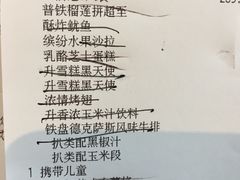 普铁榴莲拼超至
酥炸鱿鱼
缤纷水果沙拉
乳酪芝士蛋糕
升雪糕黑天使
升雪糕黑天使
浓情烤翅
升香浓玉米汁饮料
铁盘德克萨斯风味牛排
扒类配黑椒汁
扒类配玉米段
1 携带儿童